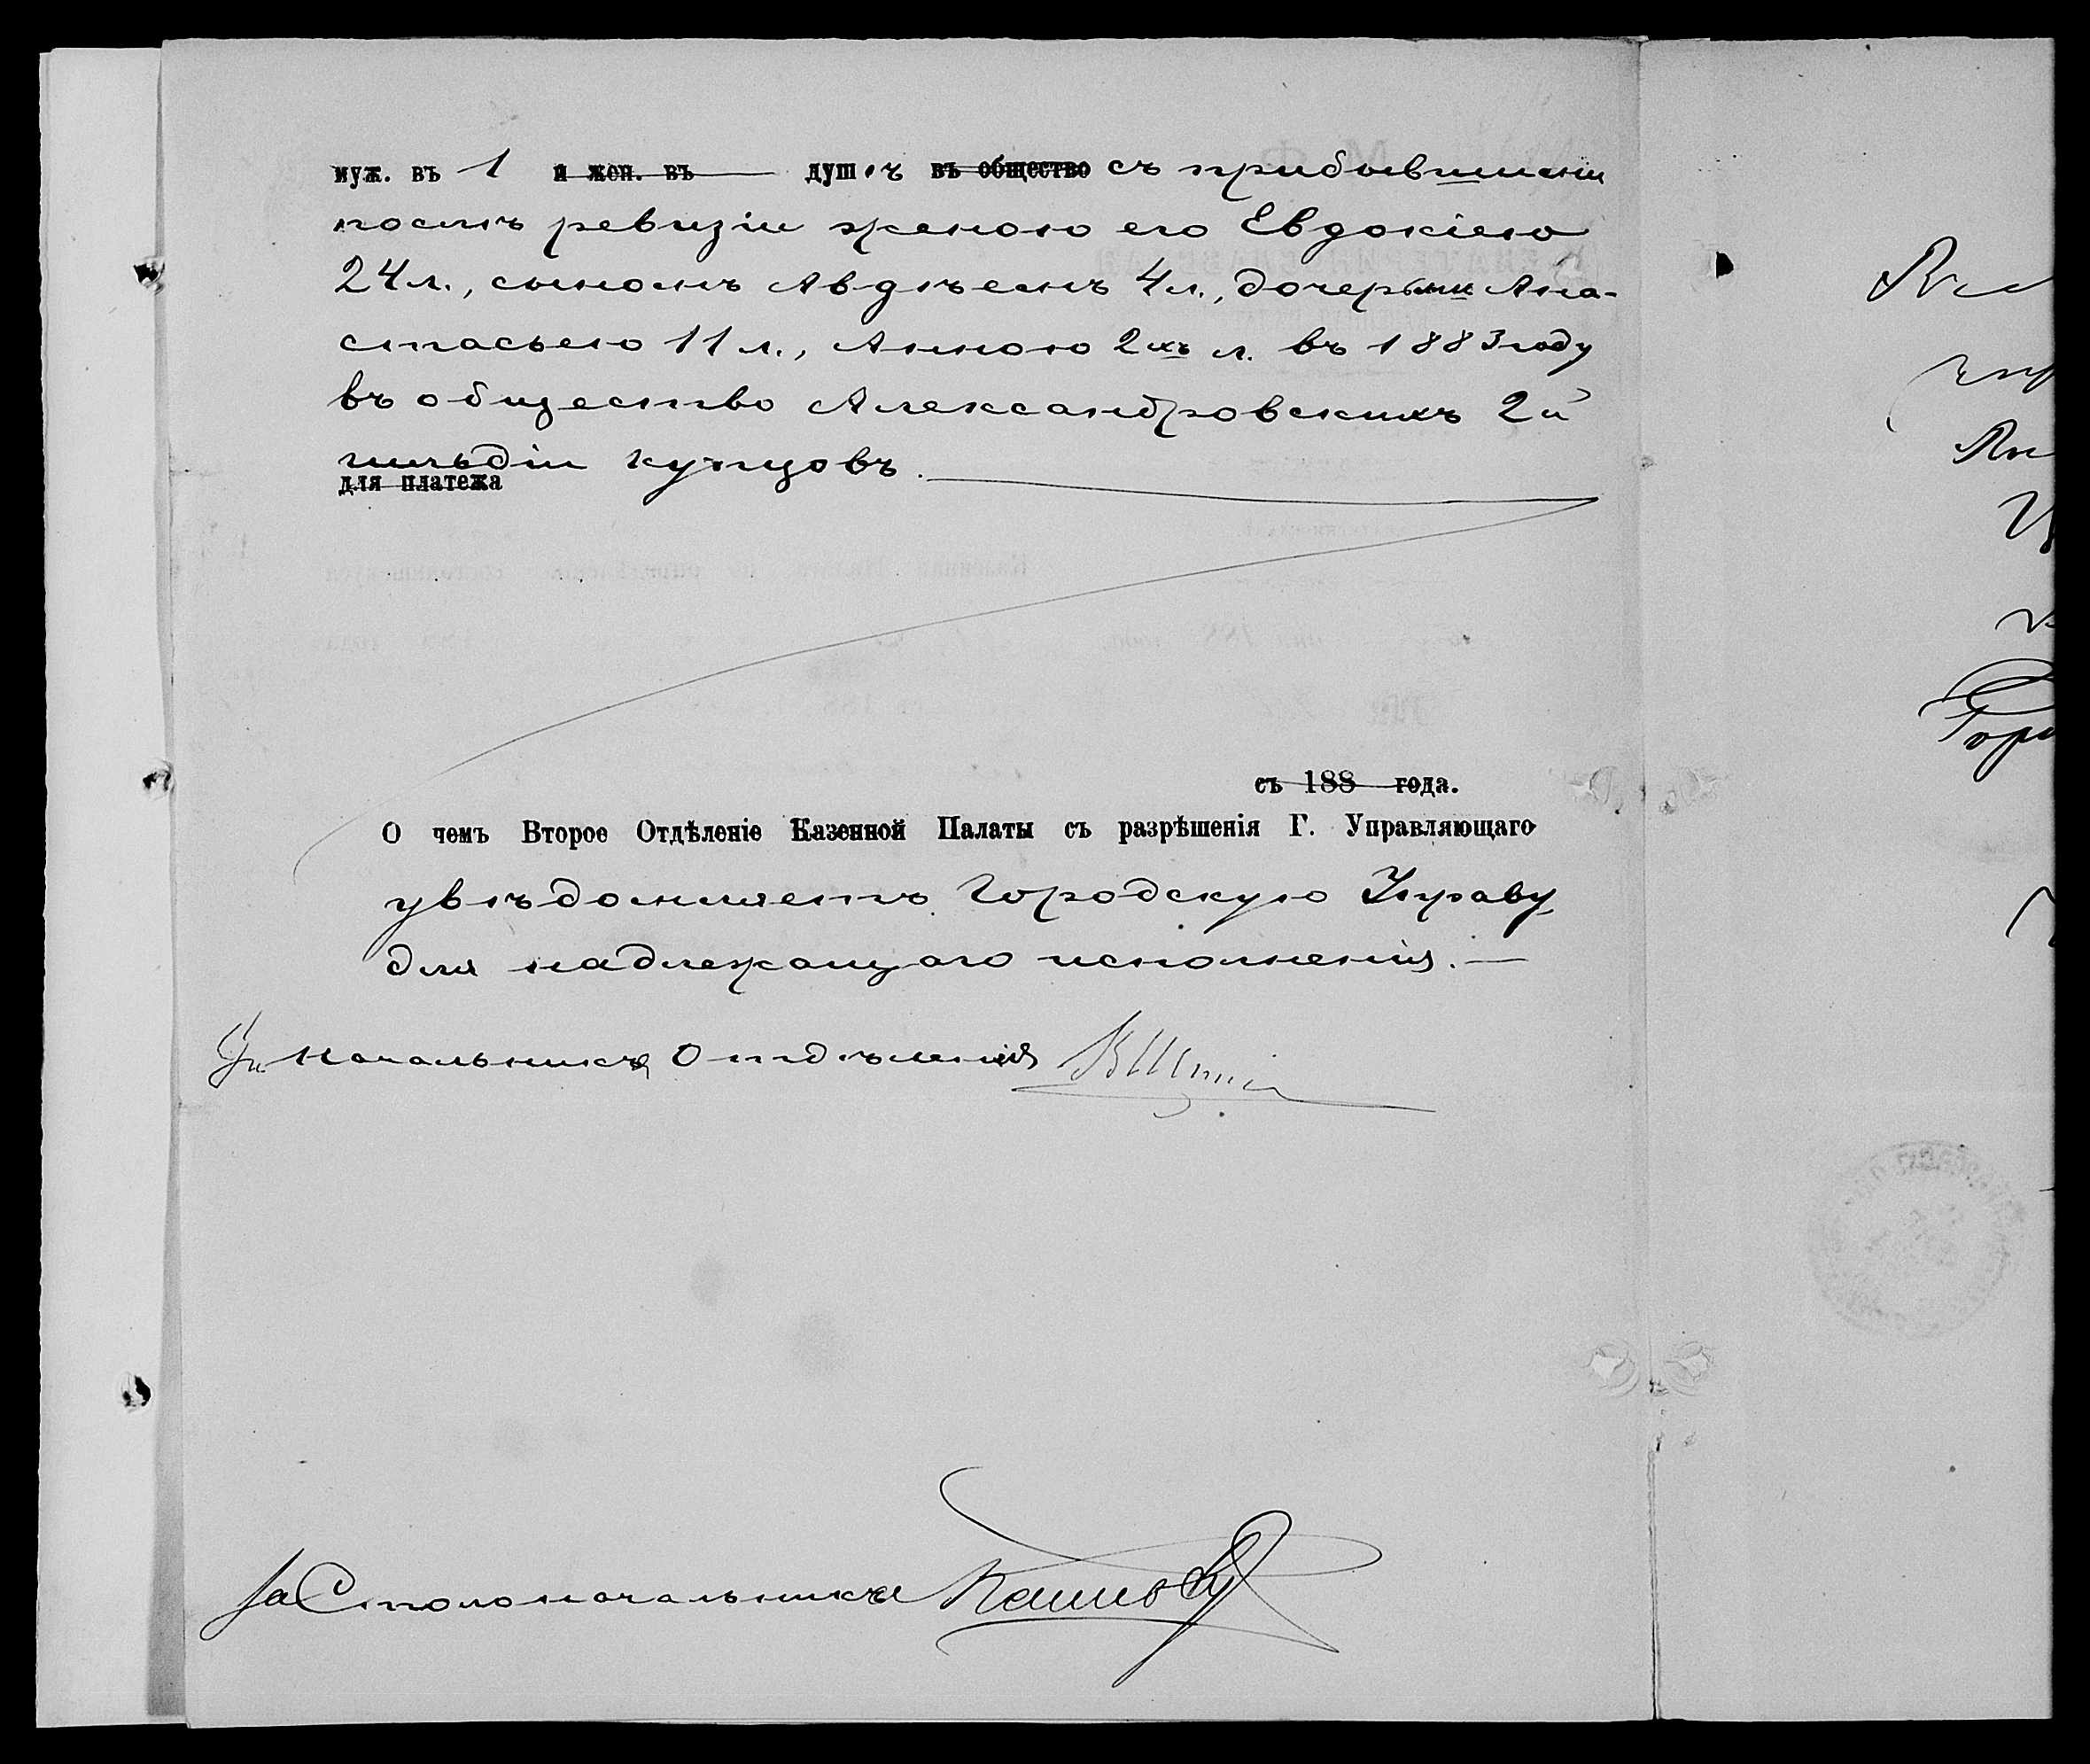 муж. въ 1 и жен. въ душѣ въ общество съ прибывшими
послѣ ревизіи женою его Евдокіею
24 л., сыномъ Авдѣемъ 4 л., дочерьми Ана-
стасьею 11 л., Анною 2хъ л. въ 1883 году
въ общество Александровскихъ 2й
гильдіи купцовъ.
для платежа
съ 188 года.
О чемъ Второе Отдѣленіе Казенной Палаты съ разрѣшенія Г. Управляющаго
увѣдомляетъ Городскую Управу,
для надлежащаго исполненія.—
Начальника Отдѣленія
За Столоначальника